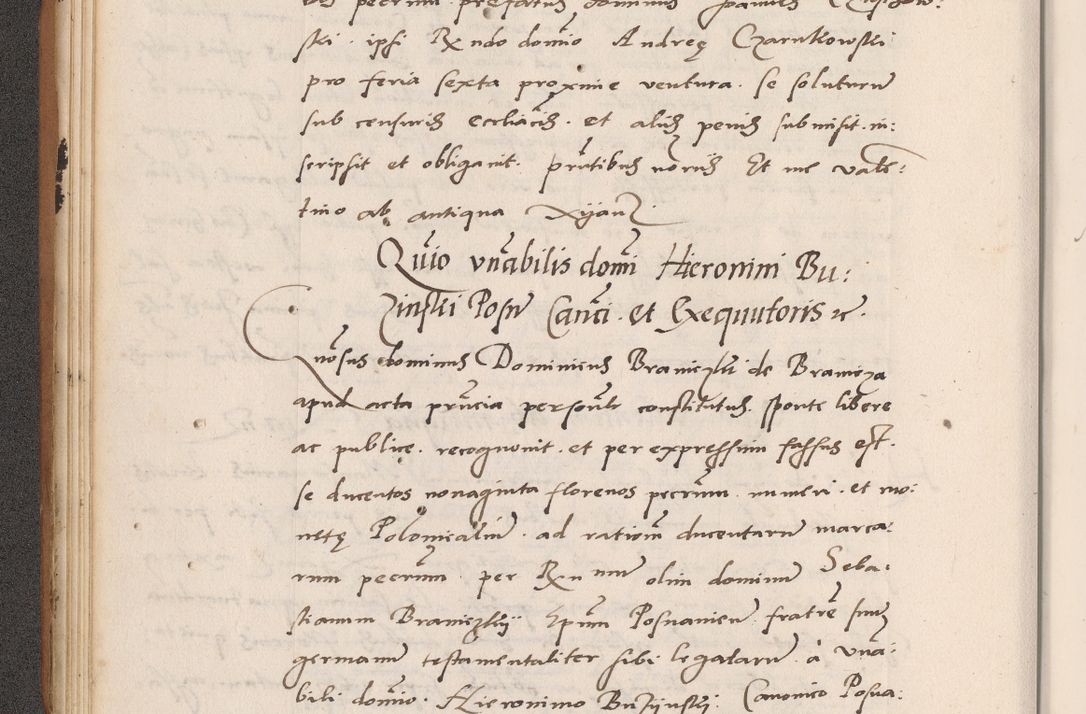 ski. ipsi Rndo domio Andreę Czarnkowski
pro feria sexta proxime ventura. se soluturum
sub censuris ecclīacis. et alijs penis submisit. in:
scripsit et obligavit. prntibus
tino ab antiqua
Quio vnabilis domi Hieronimi Bu:
zinski Posn Canci. et Exequutoris etc.
Dominus Dominicus Braniczki de Branicza
apud acta prncia personlr constitutus. sponte libere
ac publice. recognovit. et per expressum fassus est.
se ducentos nonaginta florenos pecrum. numeri. et mo:
netę Polonicalium. ad rationem ducentarum marca:
rum pecrum. per Rnum olim dominum Seba:
stianum Braniczkij Epum Posnanien fratre suum
germanum testamentaliter sibi legatarum. à vnā:
bili domio. Hieronimo Buzijnski. Canonico Posna: